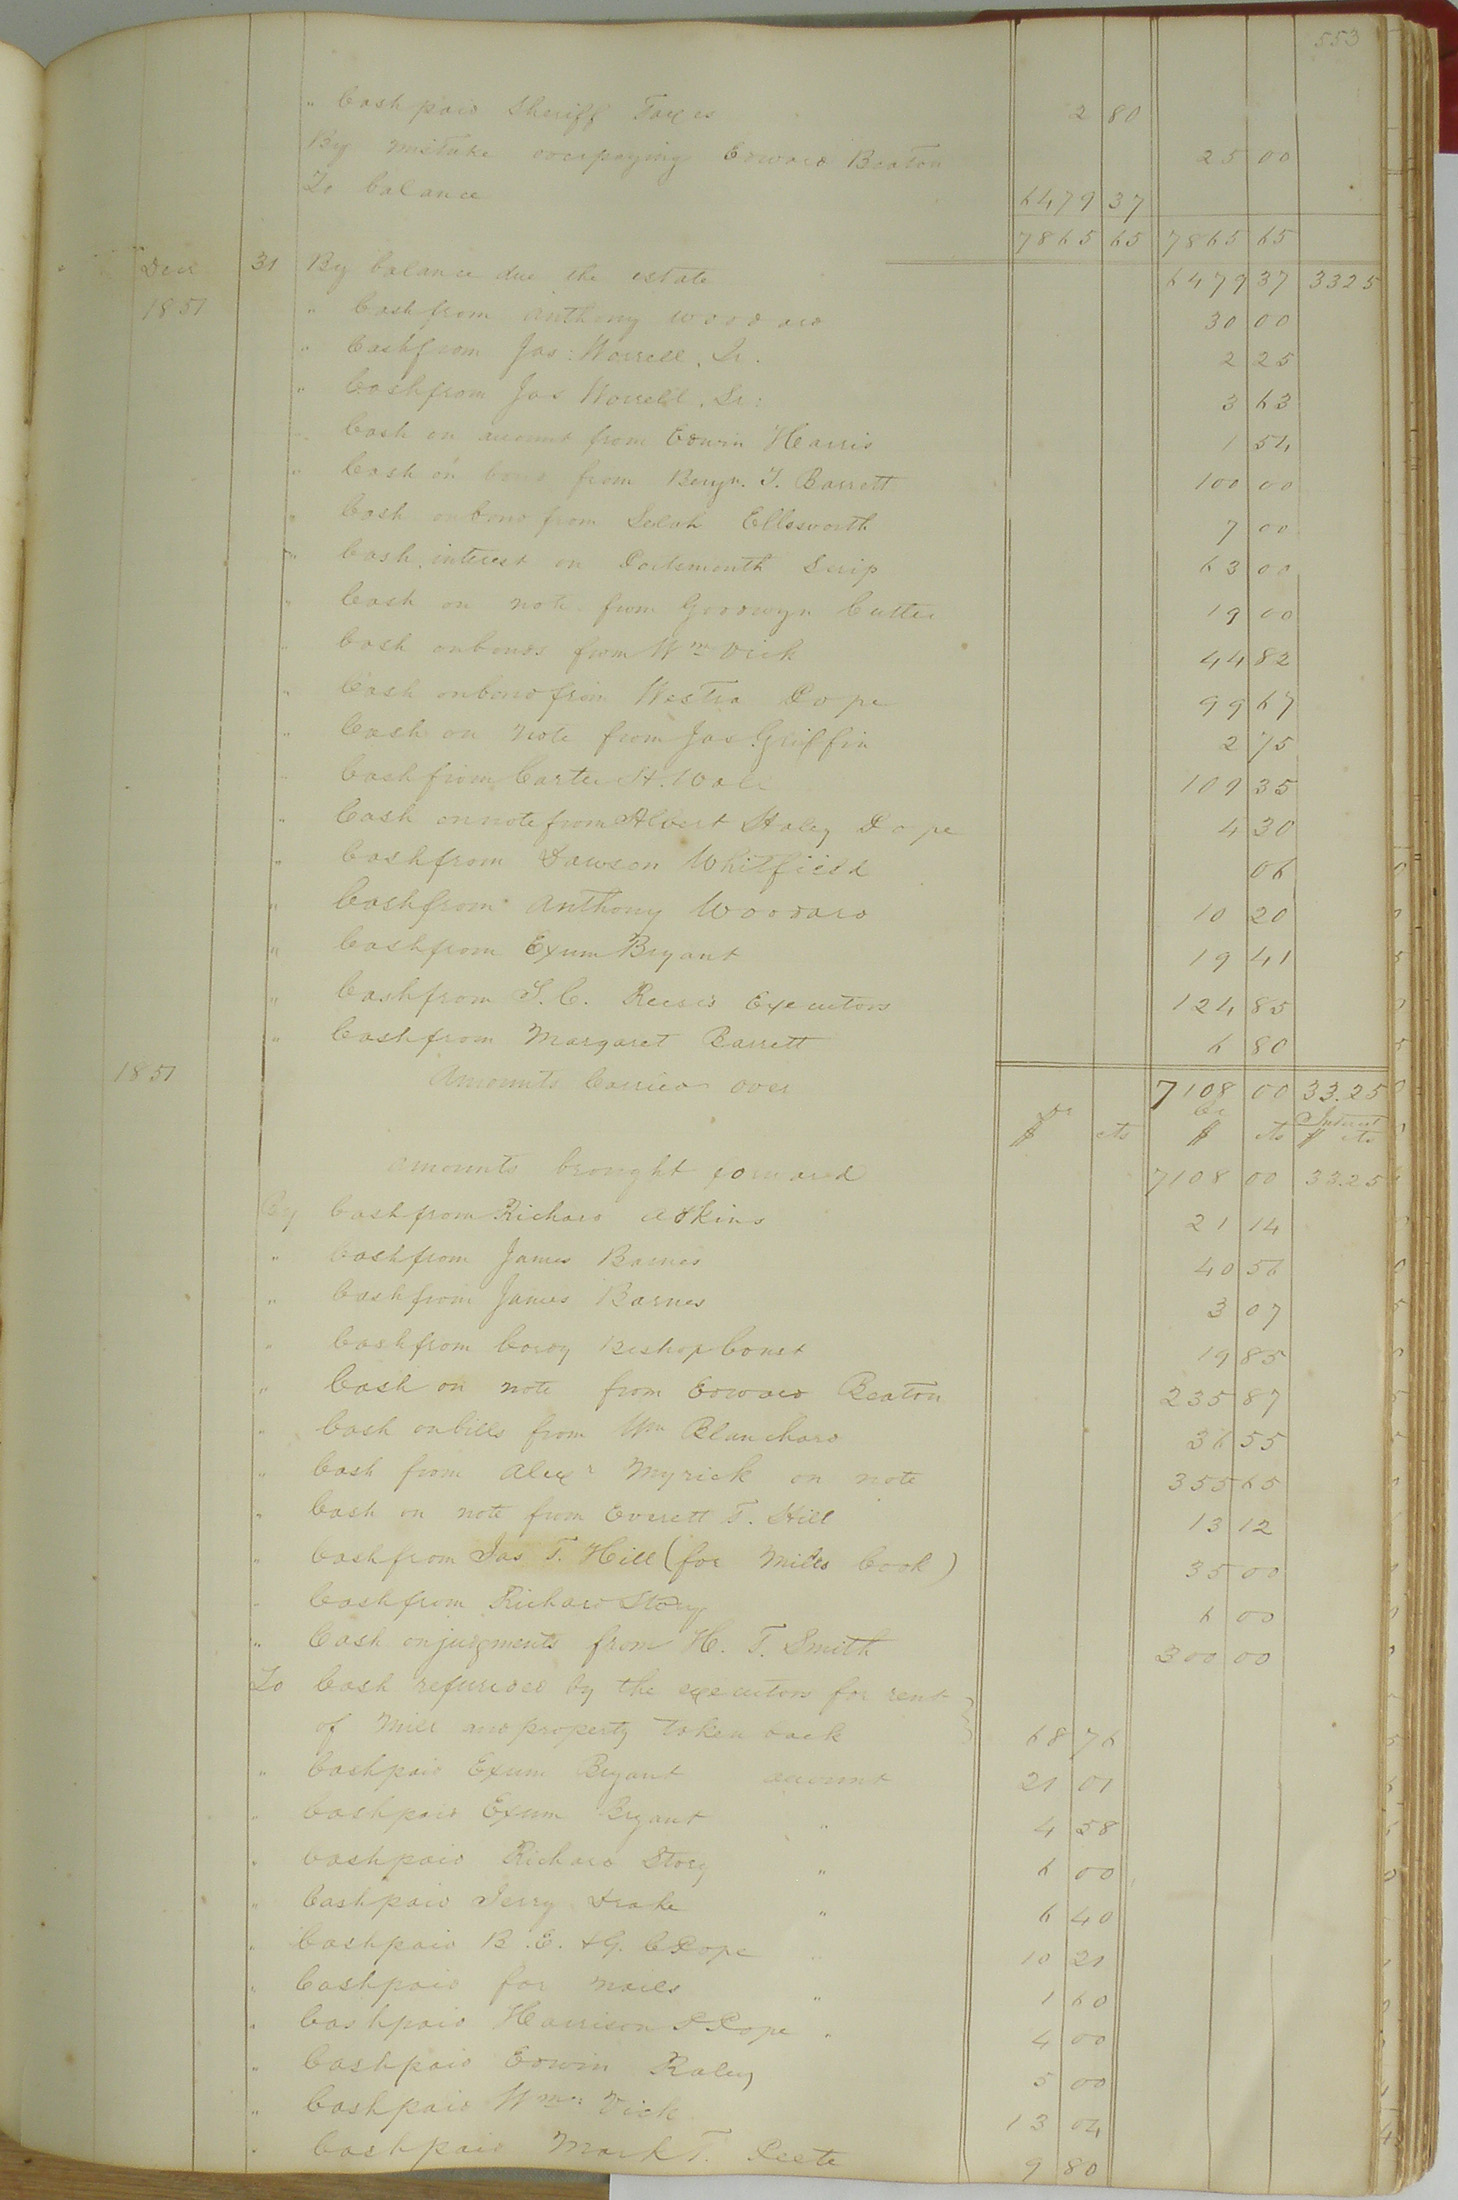 553
" Cash paid Sheriff Taxes 2 80
By mistake overpaying Edward Beaton 25 00
To balance 6479 37
7865 65 7865 65
Dec 31 By balance due the estate 6479 37 3325
1851 " Cash from Anthony Woodard 30 00
" Cash from Jas: Worrell, Jr. 2 25
" Cash from Jas Worrell, Sr: 3 63
" Cash on account from Edwin Harris 1 54
" Cash on bond from Benjn. T. Barrett 100 00
" Cash on bond from Selah Ellsworth 7 00
" Cash interest on Portsmouth Scrip 63 00
" Cash on note from Goodwyn Cutler 19 00
" Cash on bonds from Wm Vick 44 82
" Cash on bond from Westra Pope 99 67
" Cash on note from Jas Griffin 2 75
" Cash from Carter H. 109 35
" Cash on note from Albert Haley Pope 4 30
" Cash from Dawson Whitfield 06
" Cash from Anthony Woodard 10 20
" Cash from Exum Bryant 19 41
" Cash from Reese's Executors 124 85
" Cash from Margaret Barrett 6 80
1851 Amounts Carried over 7108 00 33.25
Dr Cr Interest
$ cts $ cts $ cts
Amounts brought forward 7108 00 33.25
By Cash from Richard Adkins 21 14
" Cash from James Barnes 40 56
" Cash from James Barnes 3 07
" Cash from Bishop Const 19 85
" Cash on note from Edward Beaton 235 87
" Cash on bills from Wm Blanchard 36 55
" Cash from Alexr Myrick on note 355 65
" Cash on note from Everett T. Hill 13 12
" Cash from Jas T. Hill (for Miles Cook) 35 00
" Cash from Richard Story 6 00
" Cash on judgments from H. T. Smith 300 00
To Cash refunded by the executors for rent
of Mill and property taken back 68 76
" Cash paid Exum Bryant account 21 01
" Cash paid Exum Bryant " 4 58
" Cash paid Richard Story " 6 00
" Cash paid Jerry Drake " 6 40
" Cash paid B. E. & G. C Pope " 10 21
" Cash paid for nails " 1 60
" Cash paid Harrison P Pope " 4 00
" Cash paid Edwin Raley 5 00
" Cash paid Wm: Vick 13 04
" Cash paid Mark T. Peete 9 80